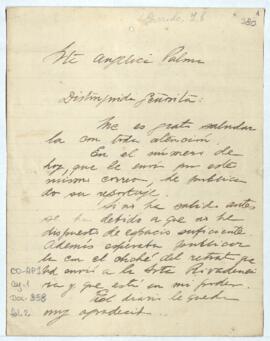 Garrido, J. E.
280
Srta Angélica Palma
Distinguida Señorita:
Me es grato saludar
la con toda atención.
En el número de
hoy, que le envío por este
mismo correo, he publica
do su reportaje.
Si no ha salido antes
se ha debido a que no he
dispuesto de espacio suficiente
Además esperaba publicar
la con el cliché del retrato que
Ud envió a la Srta Rivadenei
ra y que está en mi poder.
El diario le queda
muy agradecido
CO-AP1
Cj. 1
Doc 858
fol. 2